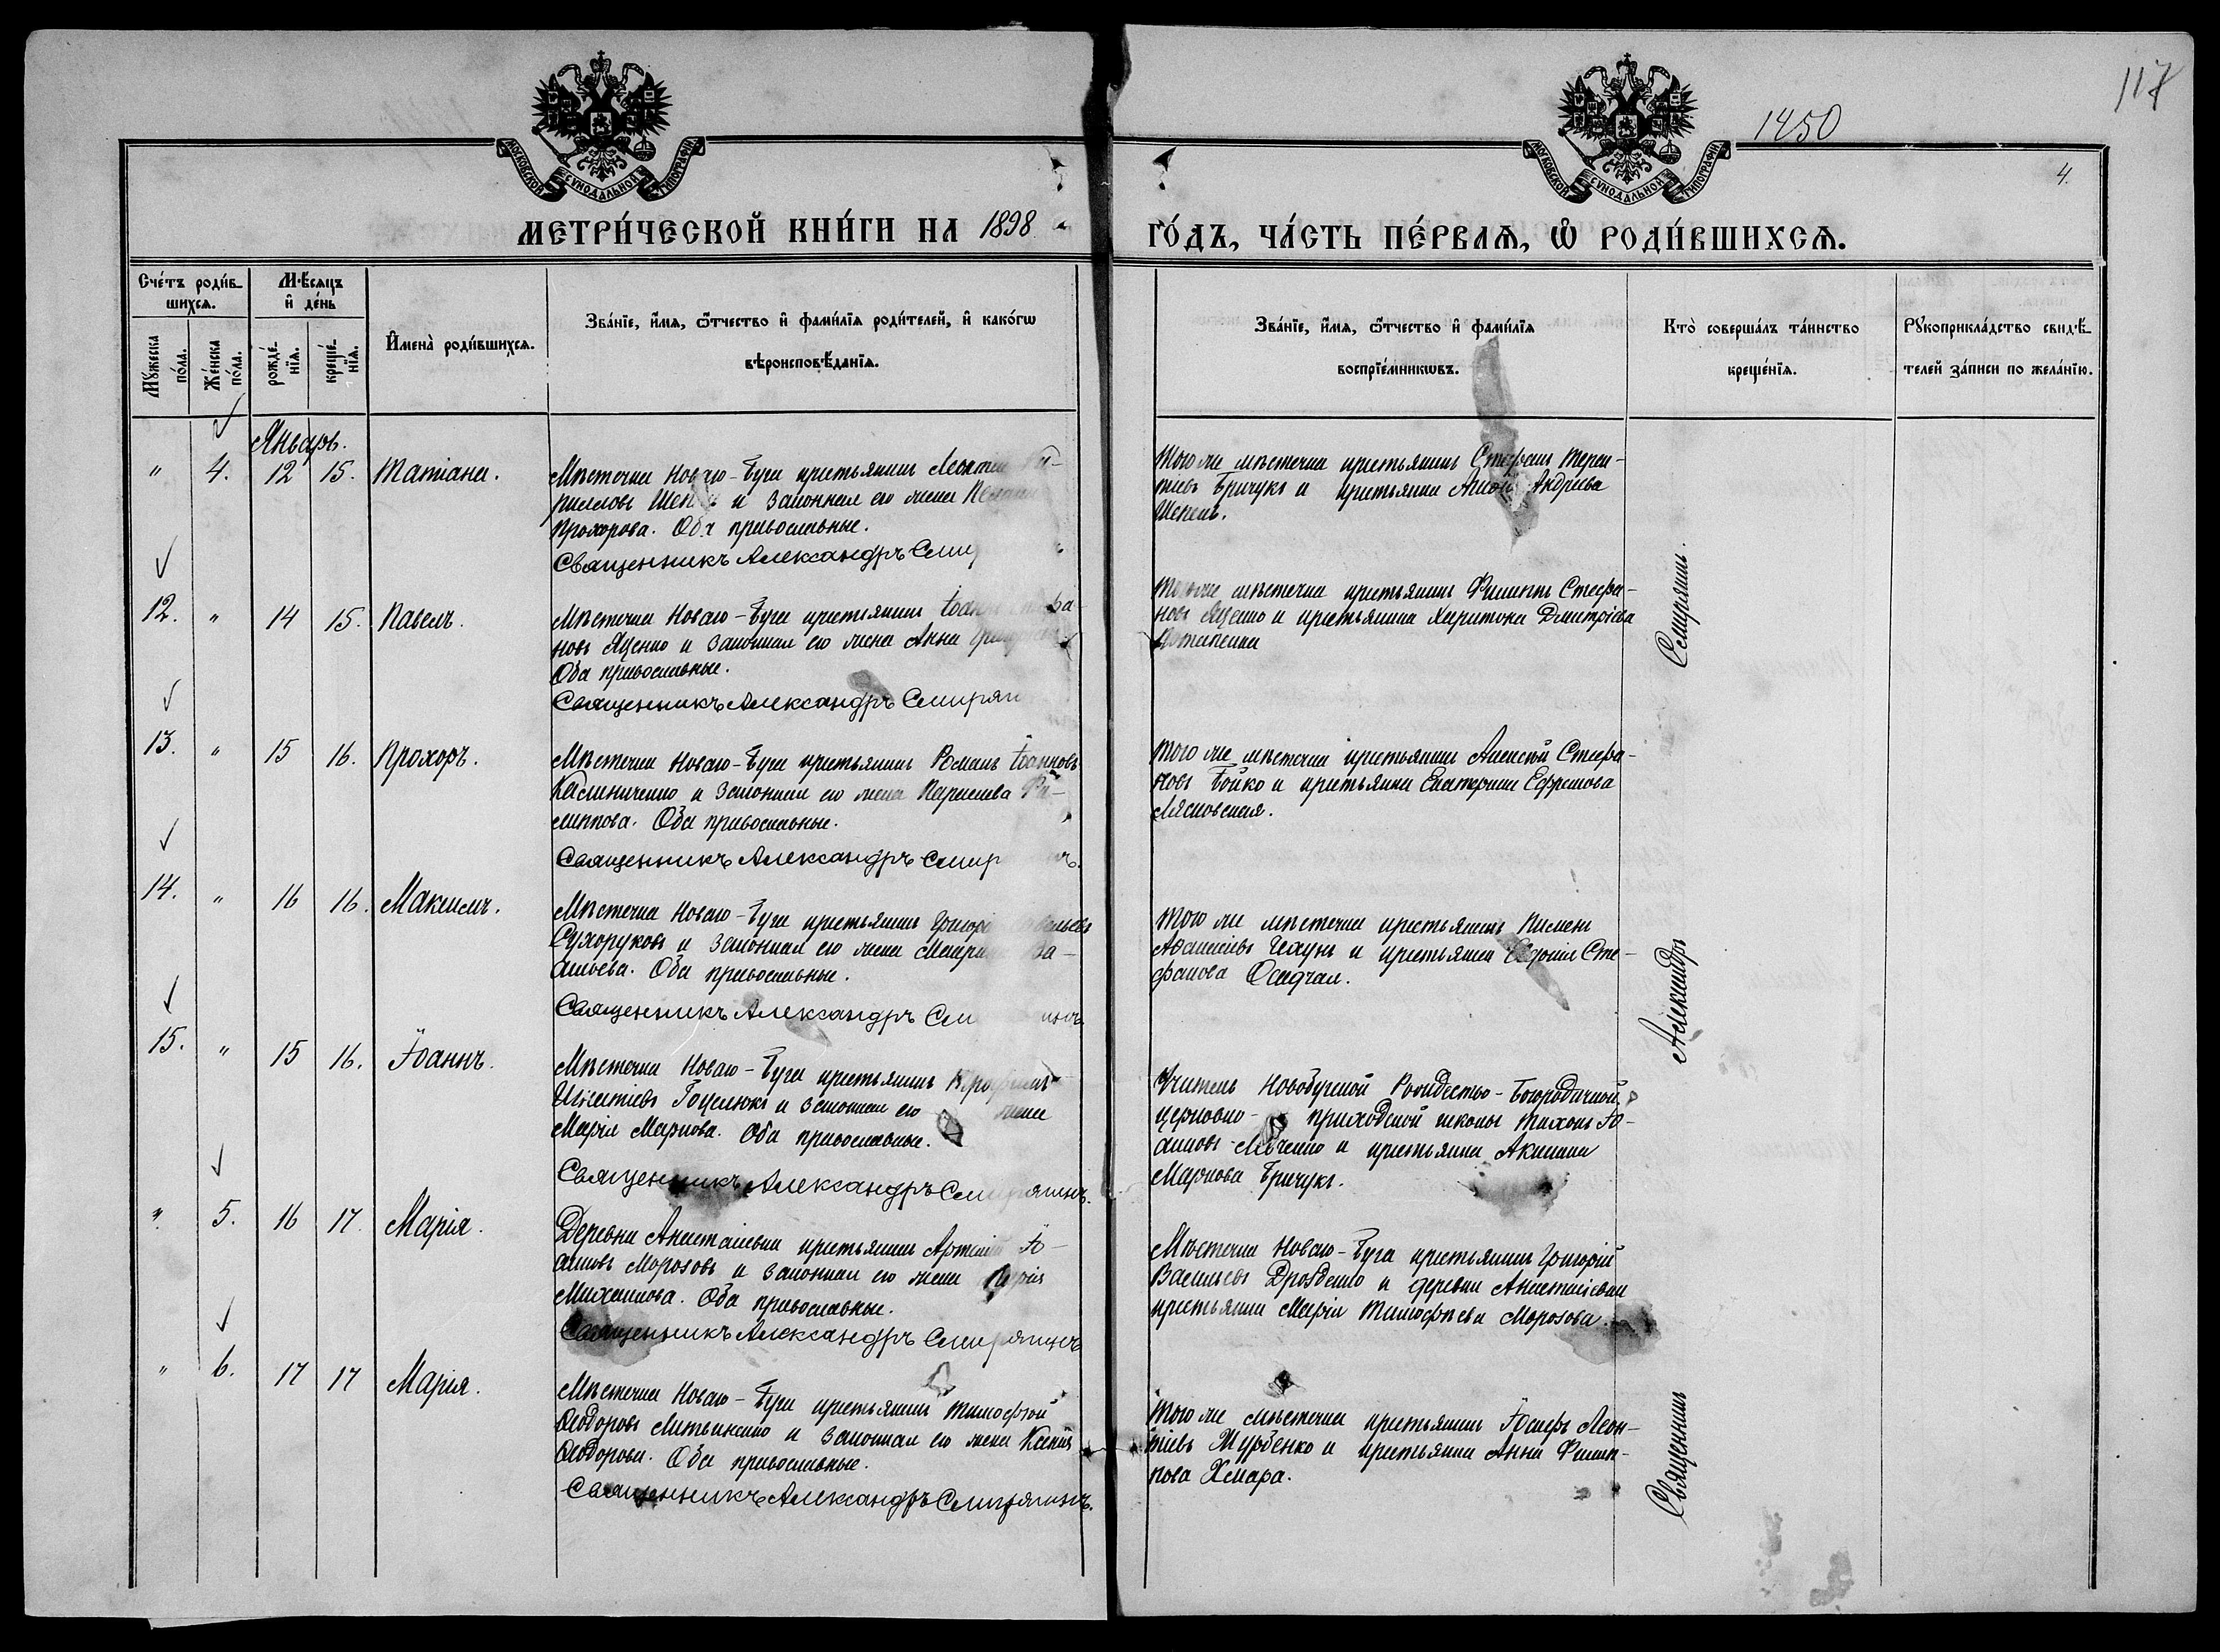 117
1450
4.
МОСКОВСКОЙ СѴНОДАЛЬНОЙ ТИПОГРАФИИ
МОСКОВСКОЙ СѴНОДАЛЬНОЙ ТИПОГРАФИИ
МЕТРИ́ЧЕСКОЙ КНИ́ГИ НА 1898 ГО́ДЪ, ЧА́СТЬ ПЕ́РВАѦ, Ѽ РОДИ́ВШИХСѦ.
Сче́тъ роди́в-
шихсѧ.
Мꙋ́жеска по́ла.
Же́нска по́ла.
Мѣ́сѧцъ
и҆ де́нь
рожде́-
нїѧ.
креще́-
нїѧ.
И҆мена̀ роди́вшихсѧ.
Зва́нїе, и҆́мѧ, ѻ҆́тчество и҆ фами́лїѧ роди́телей, и҆ како́гѡ
вѣроисповѣ́данїѧ.
Зва́нїе, и҆́мѧ, ѻ҆́тчество и҆ фами́лїѧ
воспрїе́мникѡвъ.
Кто̀ соверша́лъ та́инство
креще́нїѧ.
Рꙋкоприкла́дство свидѣ́-
телей за́писи по жела́нїю.
Январь.
" 4. 12 15. Татіана.
Мѣстечка Новаго-Буга крестьянинъ Леонтій Ки-
рилловъ Шеп и законная его жена
Прохорова. Оба православные.
Священникъ Александръ Сми
Того же мѣстечка крестьянинъ Стефанъ Терен-
тіевъ Бричукъ и крестьянка Андреева
Шепель.
12. " 14 15. Павелъ.
Мѣстечка Новаго-Буга крестьянинъ Іоаннъ Стефа-
новъ Яценко и законная его жена Анна
Оба православные.
Священникъ Александръ Смирян
Того же мѣстечка крестьянинъ Филиппъ Стефа-
новъ Яценко и крестьянина Харитона Дмитріева
Потапенка
13. " 15 16. Прохоръ.
Мѣстечка Новаго-Буга крестьянинъ Романъ Іоанновъ
Калиниченко и законная его жена Параскева Фи-
липпова. Оба православные.
Священникъ Александръ Смир нъ.
Того же мѣстечка крестьянинъ Алексѣй Стефа-
новъ Бойко и крестьянка Екатерина Ефремова
Лясковская.
14. " 16 16. Максимъ.
Мѣстечка Новаго-Буга крестьянинъ Григорій
Сухоруковъ и законная его жена Ва-
сильева. Оба православные.
Священникъ Александръ Сми инъ
Того же мѣстечка крестьянинъ Пименъ
Аѳанасіевъ Чаунъ и крестьянка Сте-
фанова Осадчая.
15. " 15 16. Іоаннъ.
Мѣстечка Новаго-Буга крестьянинъ
Игнатіевъ Гоцелюкъ и законная его жена
Марія Маркова. Оба православные.
Священникъ Александръ Смирягинъ.
Учитель Новобугской Рождество-Богородичной
церковно-приходской школы Тихонъ Іо-
анновъ и крестьянка Акилина
Маркова Бричукъ.
" 5. 16 17. Марія.
Деревни Анастасіевки крестьянинъ Артемій Іо-
анновъ Морозовъ и законная его жена Марія
Михаилова. Оба православные.
Священникъ Александръ Смирягинъ
Мѣстечка Новаго-Буга крестьянинъ Григорій
Васильевъ Дрозденко и деревни Анастасіевки
крестьянка Марія Тимофѣева Морозова.
" 6. 17 17 Марія.
Мѣстечка Новаго-Буга крестьянинъ Тимофей
Ѳеодоровъ Литвиненко и законная его жена Ксенія
Ѳеодорова. Оба православные.
Священникъ Александръ Смирягинъ.
Того же мѣстечка крестьянинъ Іосифъ Леон-
тіевъ Журбенко и крестьянка Анна Филип-
пова Хмара.
Священникъ Александръ Смирягинъ.